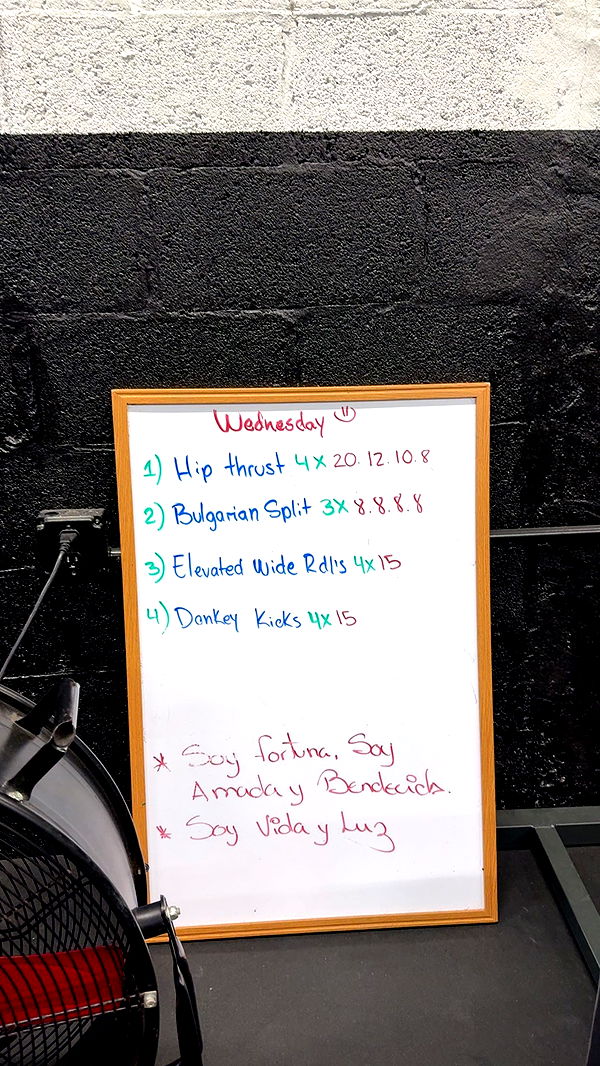 Wednesday
1) Hip thrust 4x 20.12.10.8
2) Bulgarian Split 3x 8.8.8.8
3) Elevated Wide Rdl's 4x15
4) Donkey Kicks 4x15
* Soy fortuna, Soy
Amada y Bendecida.
* Soy Vida y Luz